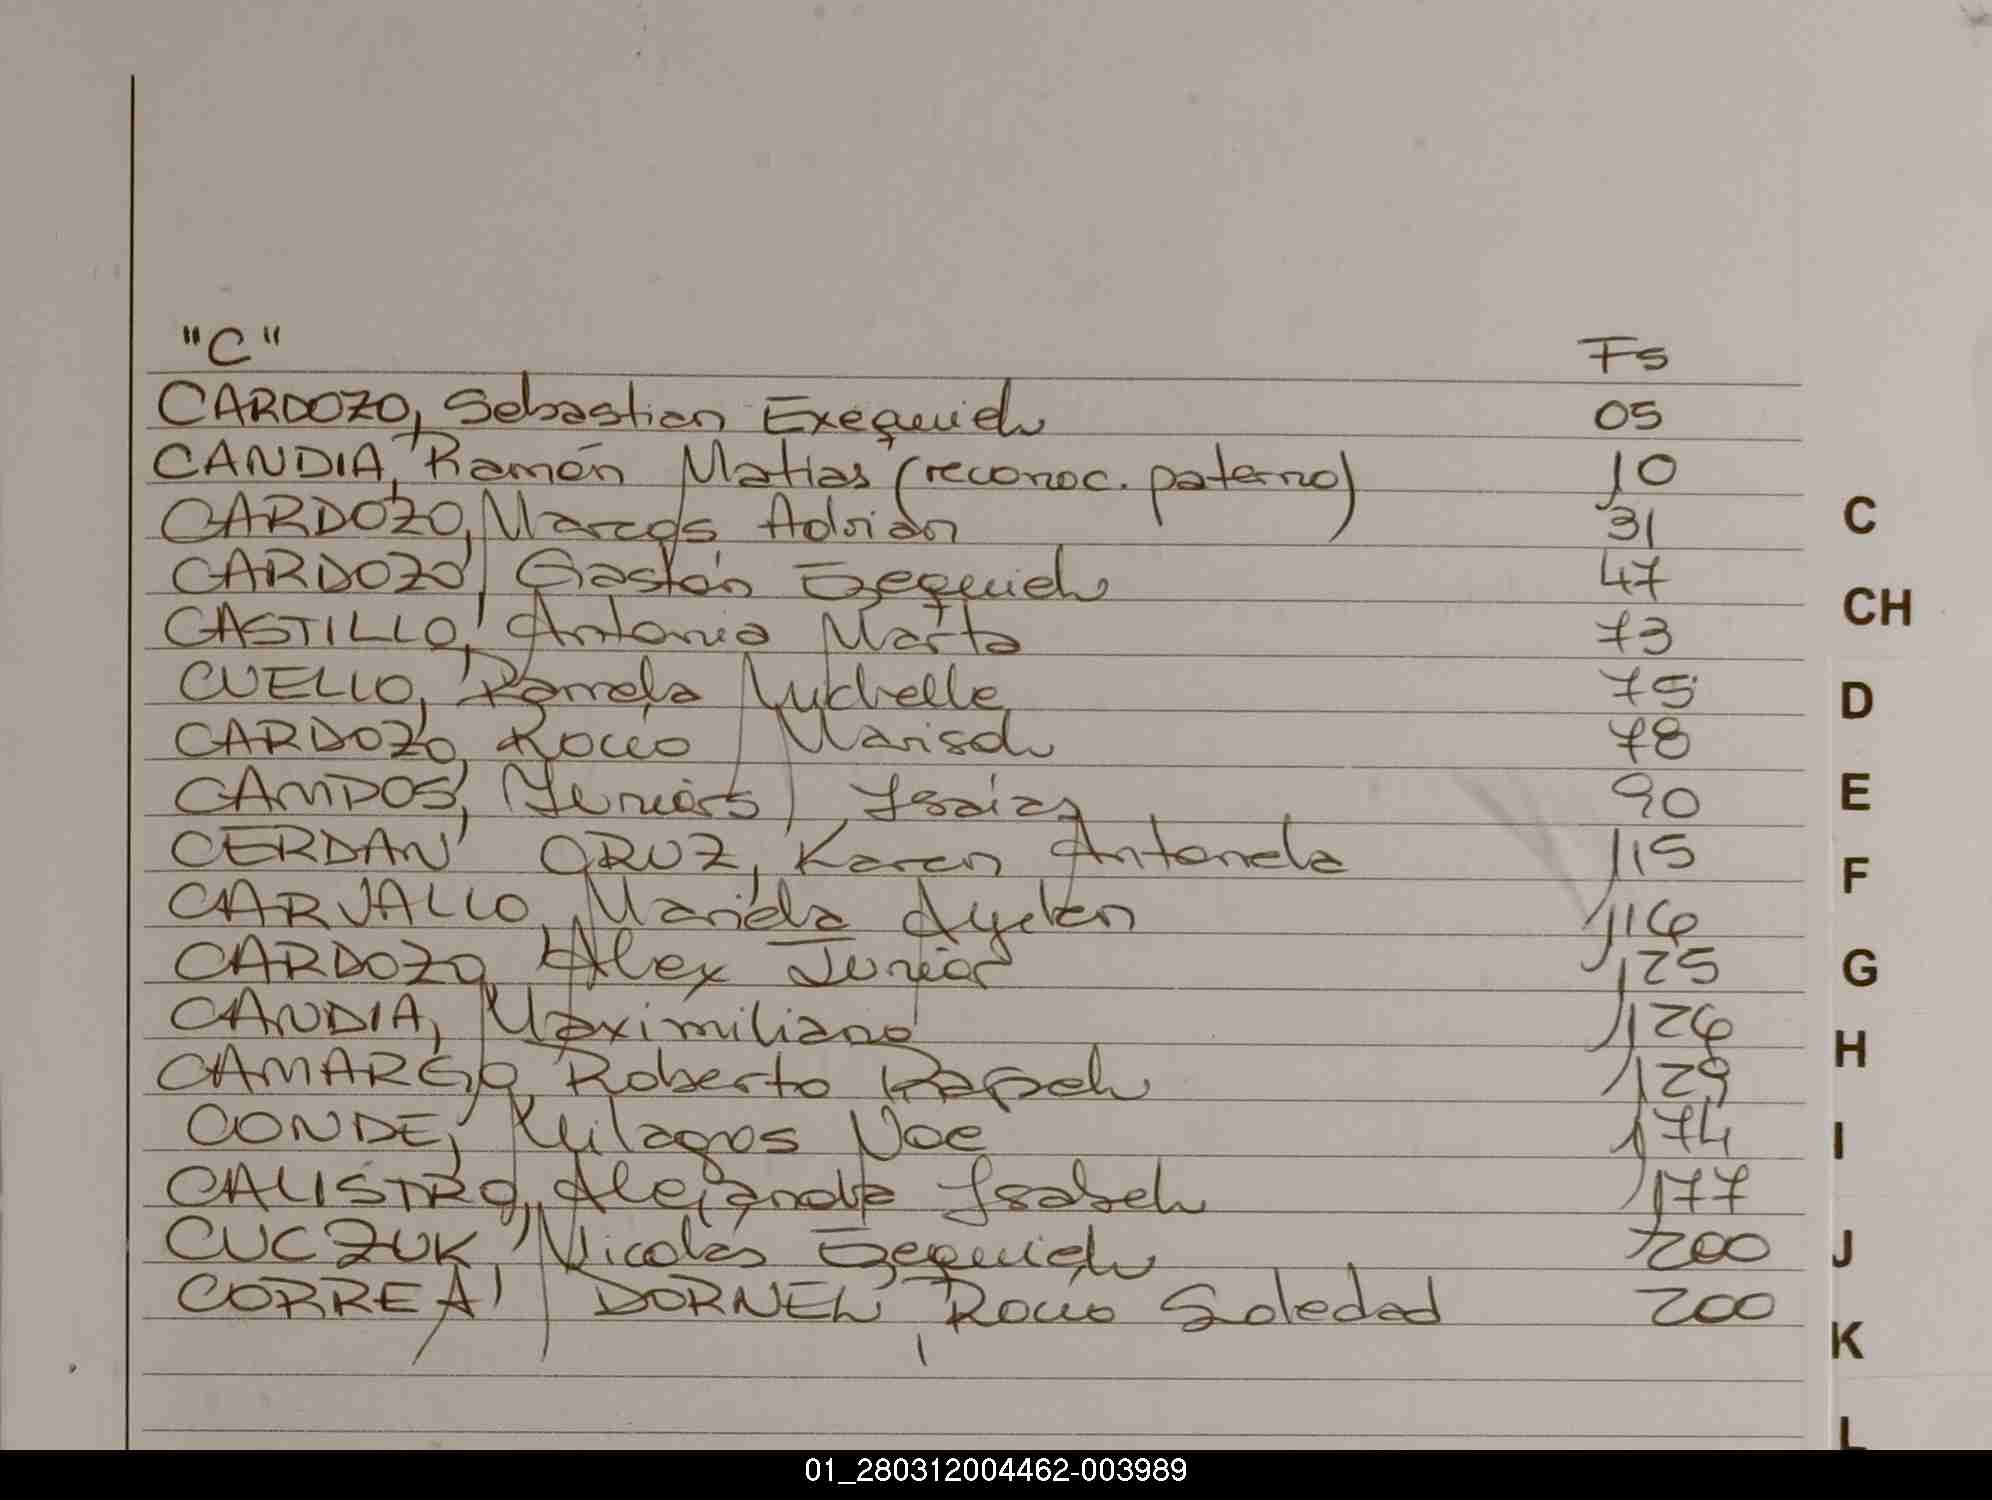 "C" Fs
CARDOZO, Sebastian Exequiel 05
CANDIA, Ramón Matias (reconoc. paterno) 10
CARDOZO, Marcos Adrián 31
CARDOZO, Gastón Ezequiel 47
CASTILLO, Antonia Marta 73
CUELLO, Pamela Michelle 75
CARDOZO, Rocio Marisol 78
CAMPOS, Yuniors Isaías 90
CERDAN CRUZ, Karen Antonela 115
CARVALLO, Mariela Ayelen 116
CARDOZO, Alex Junior 125
CANDIA, Maximiliano 126
CAMARGO, Roberto Rafael 129
CONDE, Milagros Noe 174
CALISTRO, Alejandra Isabel 177
CUCZUK, Nicolás Ezequiel 200
CORREA, DORNEL, Rocio Soledad 200
C
CH
D
E
F
G
H
I
J
K
L
01_280312004462-003989